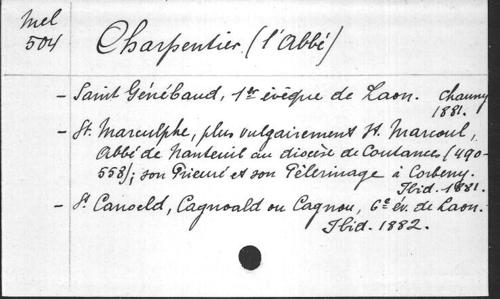 Mel
504
Charpentier (l'Abbé)
- Saint Génébaud, 1er évêque de Laon. Chauny
1881.
- St. Marculphe, plus vulgairement St. Marcoul,
Abbé de Nanteuil au diocèse de Coutances (490-
558); son Prieuré et son Pèlerinage à Corbeny.
Ibid. 1881.
- St. Canoeld, Cagnoald ou Cagnou, 6e év. de Laon.
Ibid. 1882.